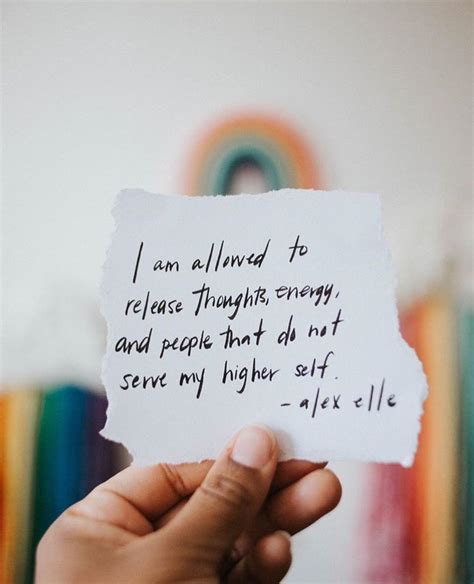 I am allowed to
release thoughts, energy,
and people that do not
serve my higher self.
- alex elle